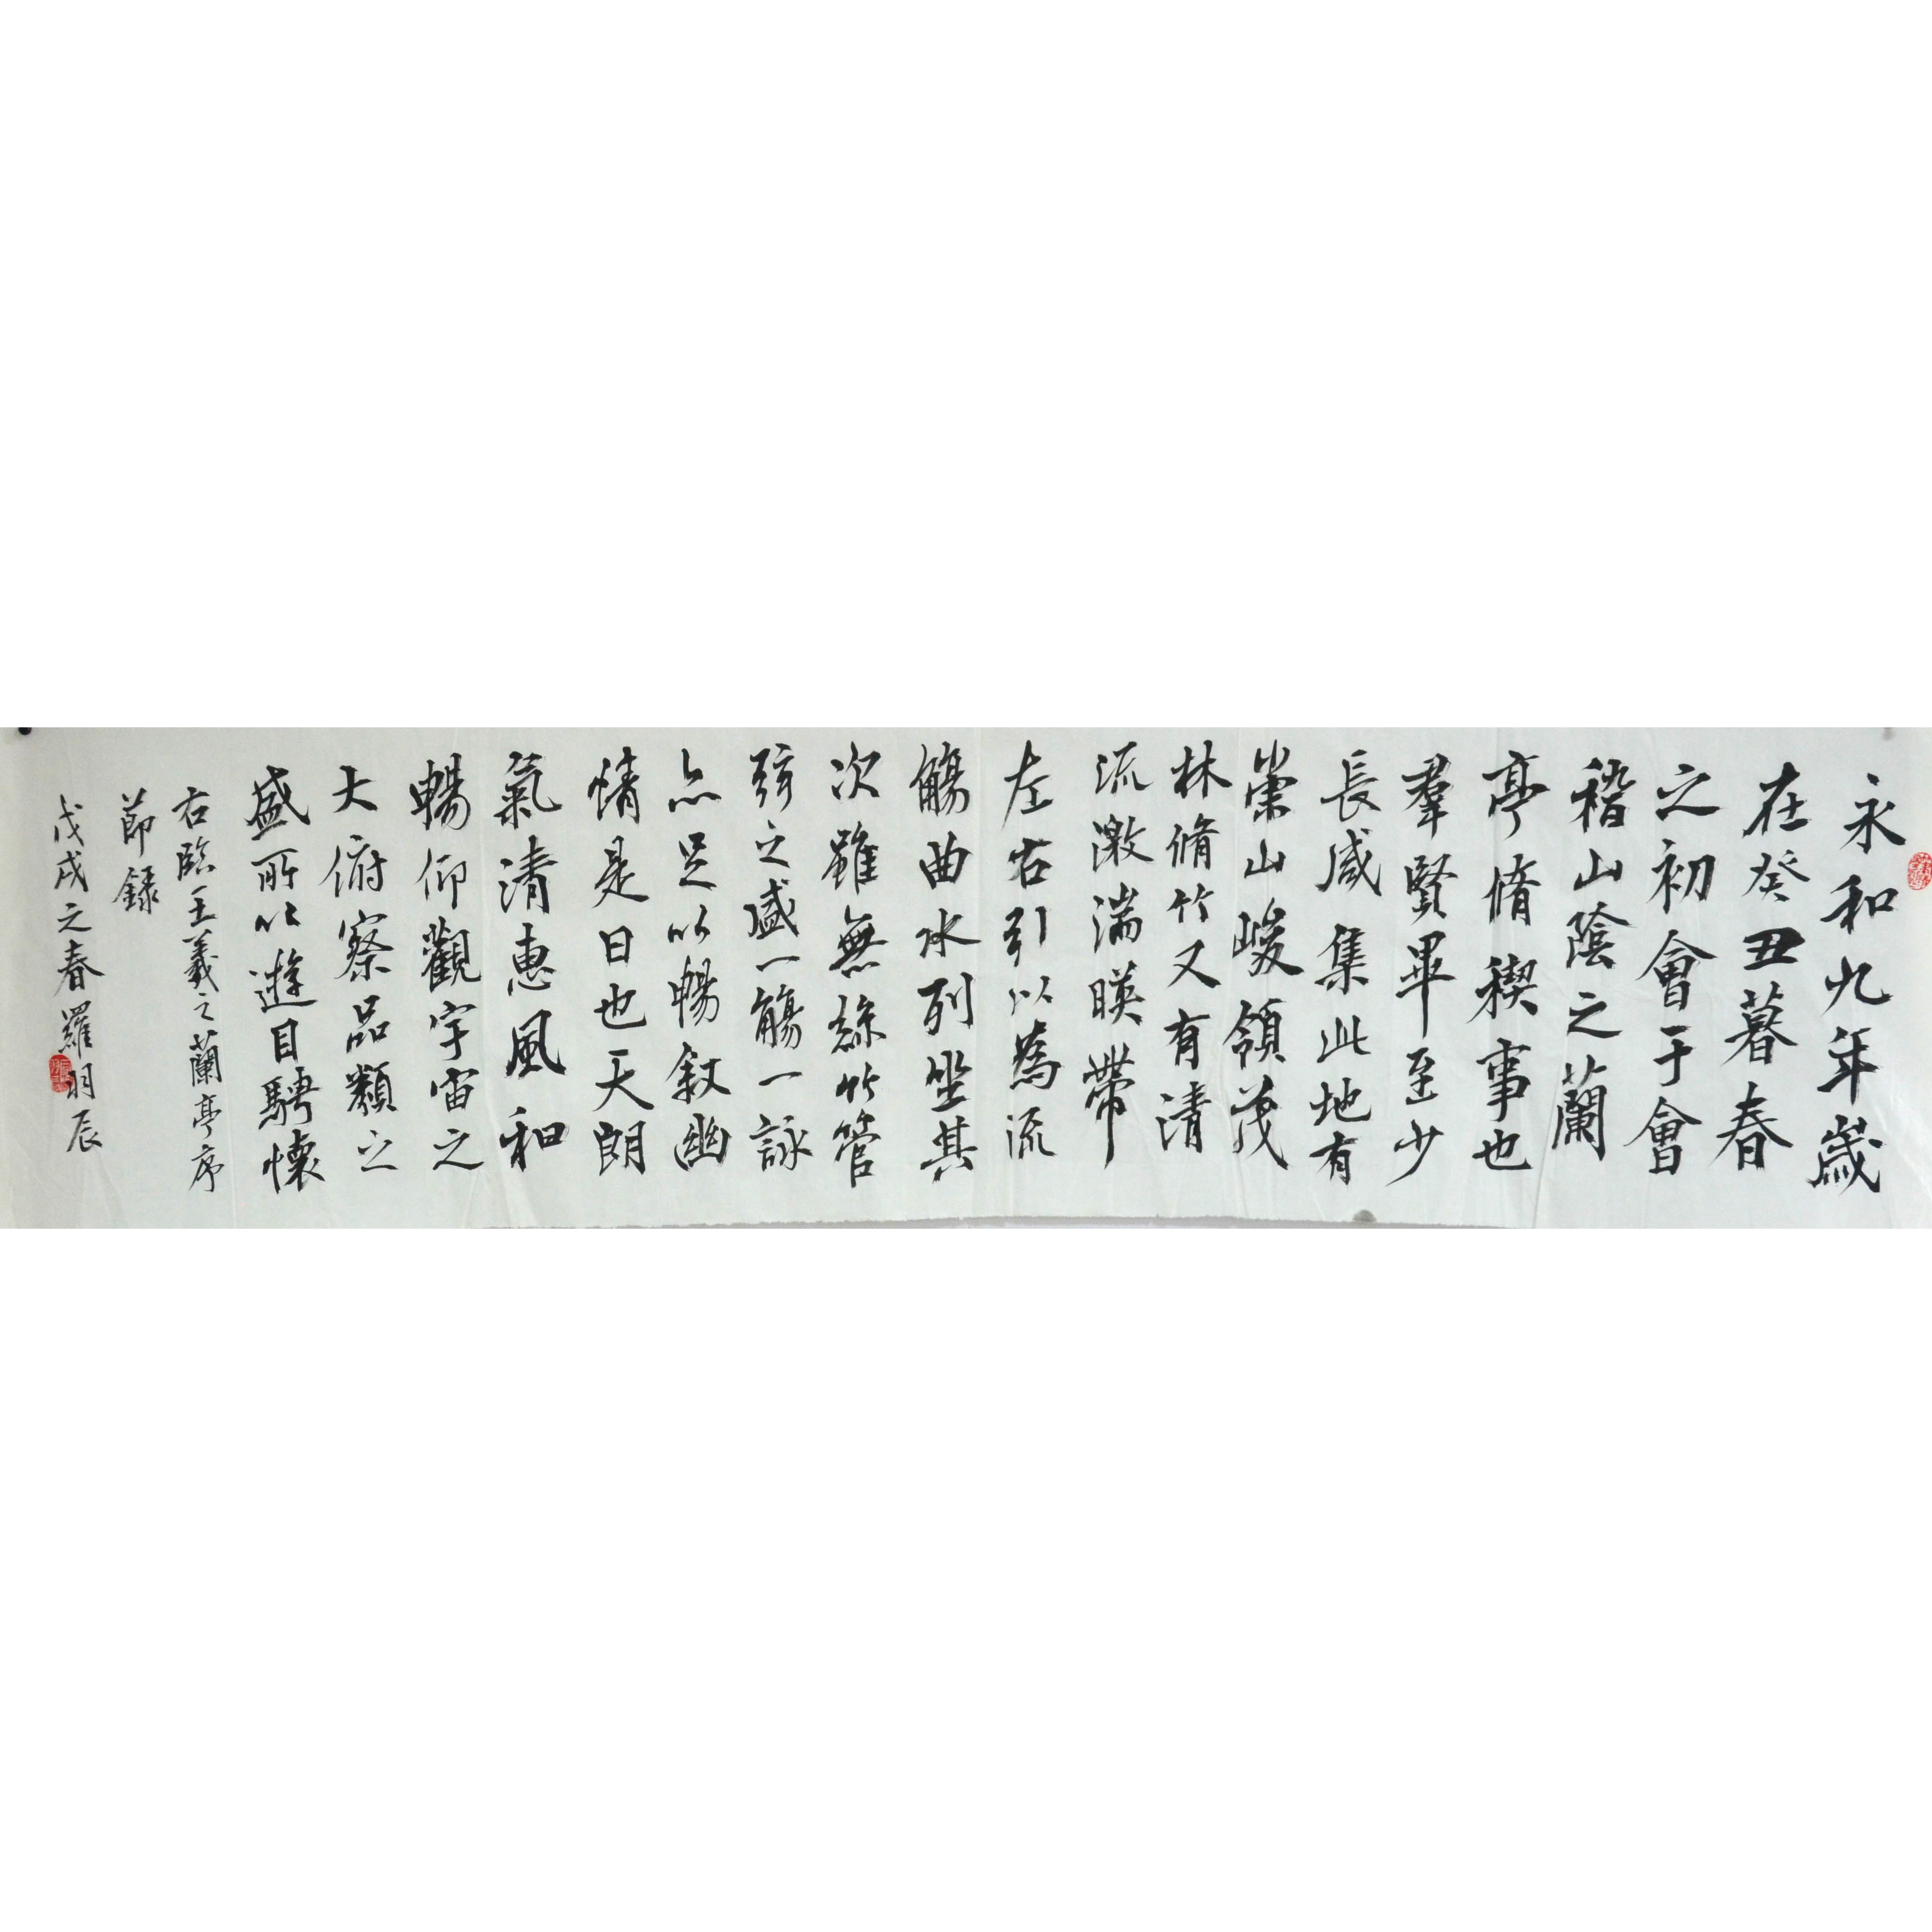 永和九年歲
在癸丑暮春
之初會于會
稽山陰之蘭
亭脩稧事也
羣賢畢至少
長咸集此地有
崇山峻領茂
林脩竹又有清
流激湍暎帶
左右引以為流
觴曲水列坐其
次雖無絲竹管
弦之盛一觴一詠
亦足以暢敘幽
情是日也天朗
氣清惠風和
暢仰觀宇宙之
大俯察品類之
盛所以遊目騁懷
右臨王羲之蘭亭序
節錄
戊戌之春羅羽辰